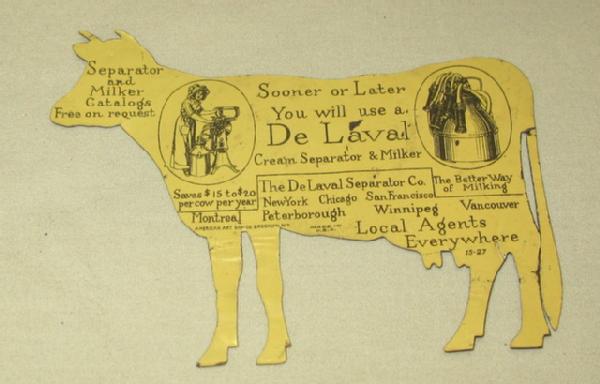 Separator
and
Milker
Catalogs
Free on request
Sooner or Later
You will use a
De Laval
Cream Separator & Milker
Saves $15 to $20
per cow per year
The De Laval Separator Co.
New York Chicago San Francisco
Peterborough Winnipeg Vancouver
Montreal
The Better Way
of Milking
Local Agents
Everywhere
15-27
AMERICAN ART